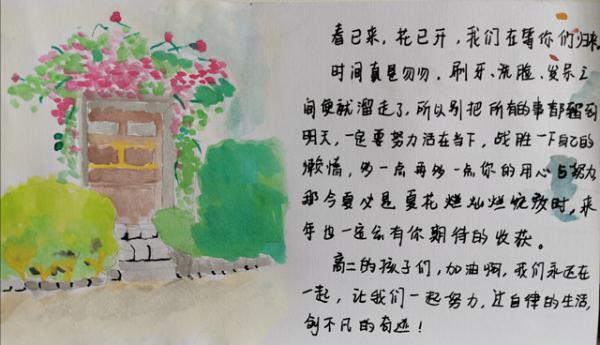 春已来,花已开,我们在等你们归来。
时间真是匆匆,刷牙、洗脸、发呆之
间便就溜走了,所以别把所有的事都留到
明天,一定要努力活在当下,战胜一下自己的
懒惰,多一点再多一点你的用心与努力
那今夏必是夏花烂灿烂绽放时,来
年也一定会有你期待的收获。
高二的孩子们,加油啊,我们永远在
一起,让我们一起努力,过自律的生活,
创不凡的奇迹!